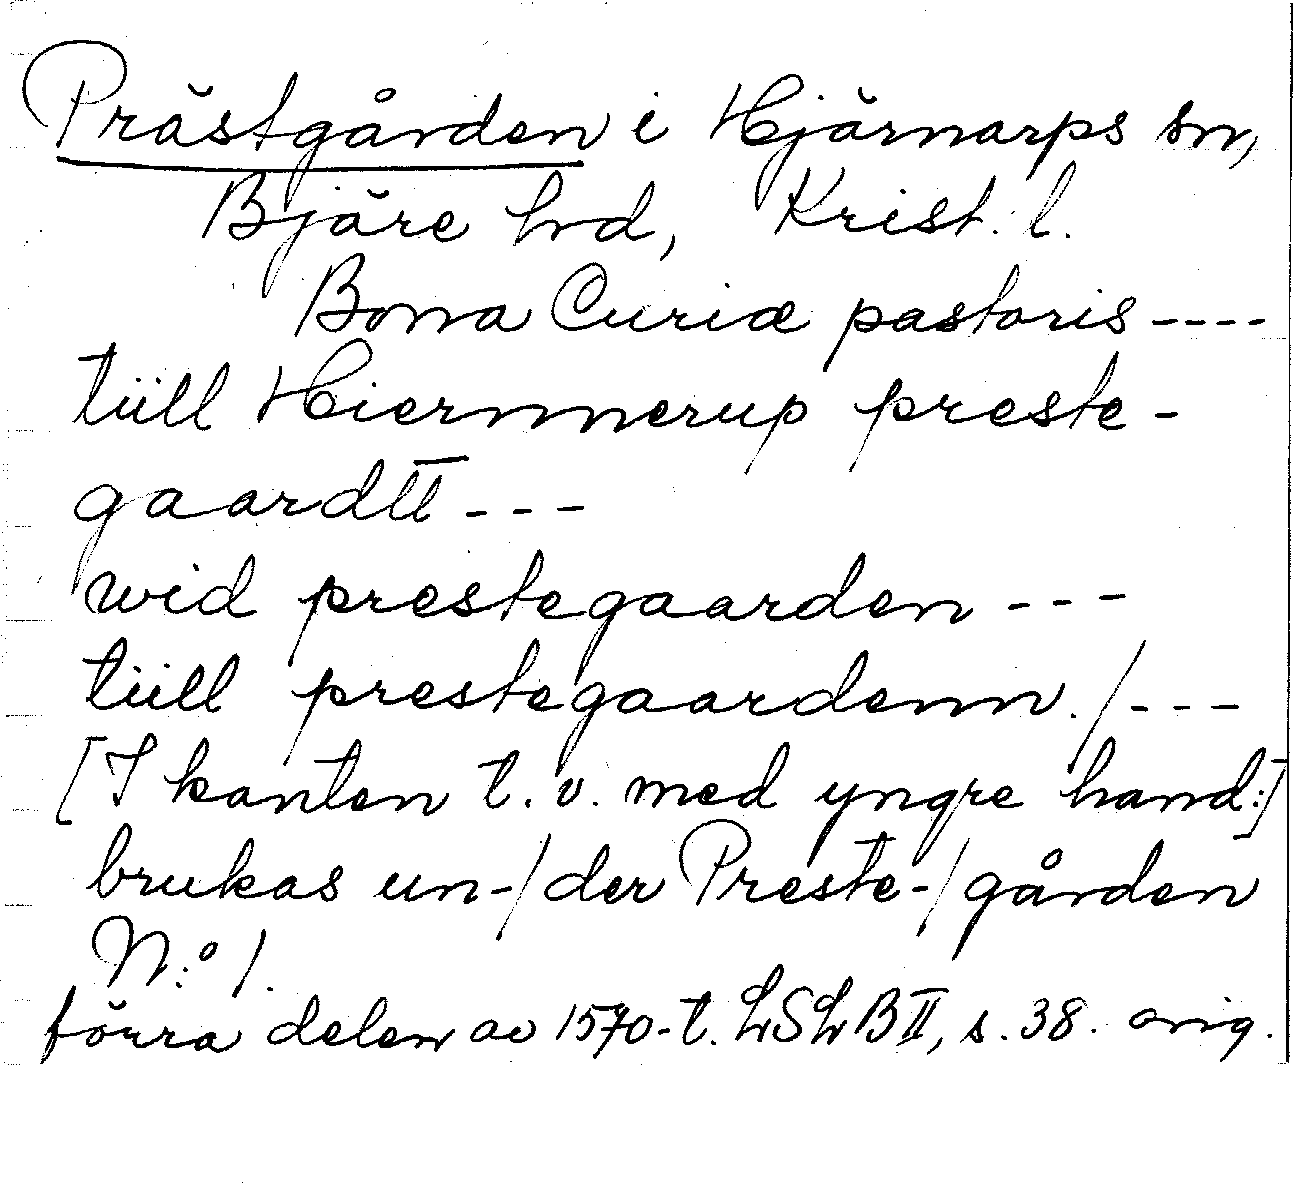 Prästgården i Hjärnarps sn,
Bjäre hd, Krist. l.
Bona Curiæ pastoris ----
tiill Hiernnerup preste-
gaardtt ---
wid prestegaarden ---
tiill prestegaardenn./---
[I kanten t.v. med yngre hand:]
brukas un-/der Preste-/gården
N:o 1.
förra delen av 1570-t. LSLB II, s. 38. orig.